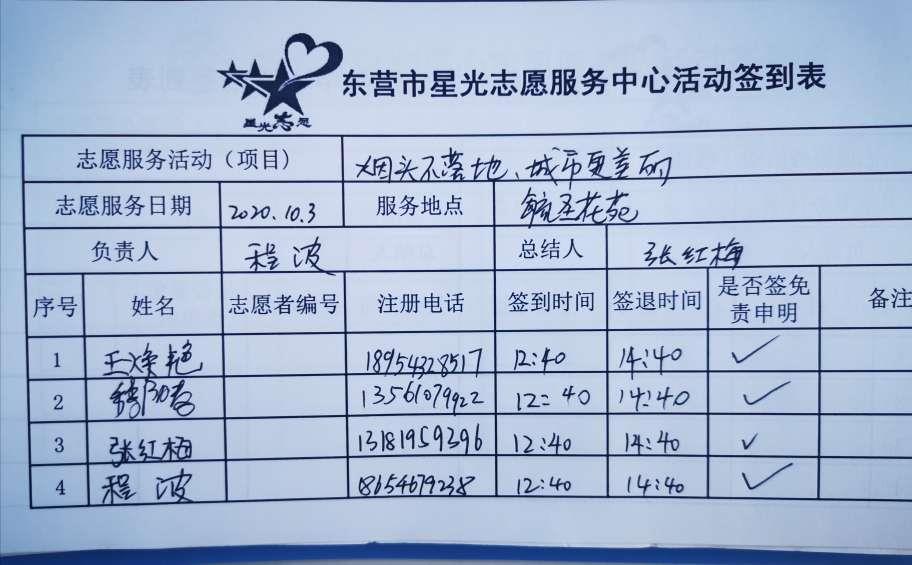 东营市星光志愿服务中心活动签到表
星光志愿
志愿服务活动（项目） 烟头不落地、城市更美丽
志愿服务日期 2020.10.3 服务地点 毓圣花苑
负责人 程波 总结人 张红梅
序号 姓名 志愿者编号 注册电话 签到时间 签退时间 是否签免责申明 备注
1 王 艳 18954328517 12:40 14:40 ✓
2 13561079922 12:40 14:40 ✓
3 张红梅 13181959396 12:40 14:40 ✓
4 程波 18654679238 12:40 14:40 ✓